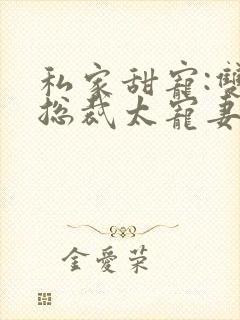 私家甜寵:雙
总裁太寵妻
金愛荣